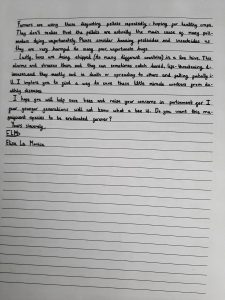 Farmers are using these disgusting pellets repeatedly, hoping for healthy crops.
They don't realise that the pellets are actually the main cause of many poll-
inators dying unfortunately. Please consider banning pesticides and insecticides as
they are very harmful to many poor, unfortunate bugs.
Lastly, bees are being shipped (to many different countries) in a bee hive. This
alarms and stresses them and they can sometimes catch dated, life-threatening d-
iseases and they mostly end in death or spreading to others and getting
it. I implore you to find a way to save these little miracle workers from de-
athly diseases.
I hope you will help save bees and raise your concerns in parliament for if
your younger generations will not know what a bee is. Do you want this ma-
gnificent species to be eradicated forever?
Yours sincerely,
Elisa La